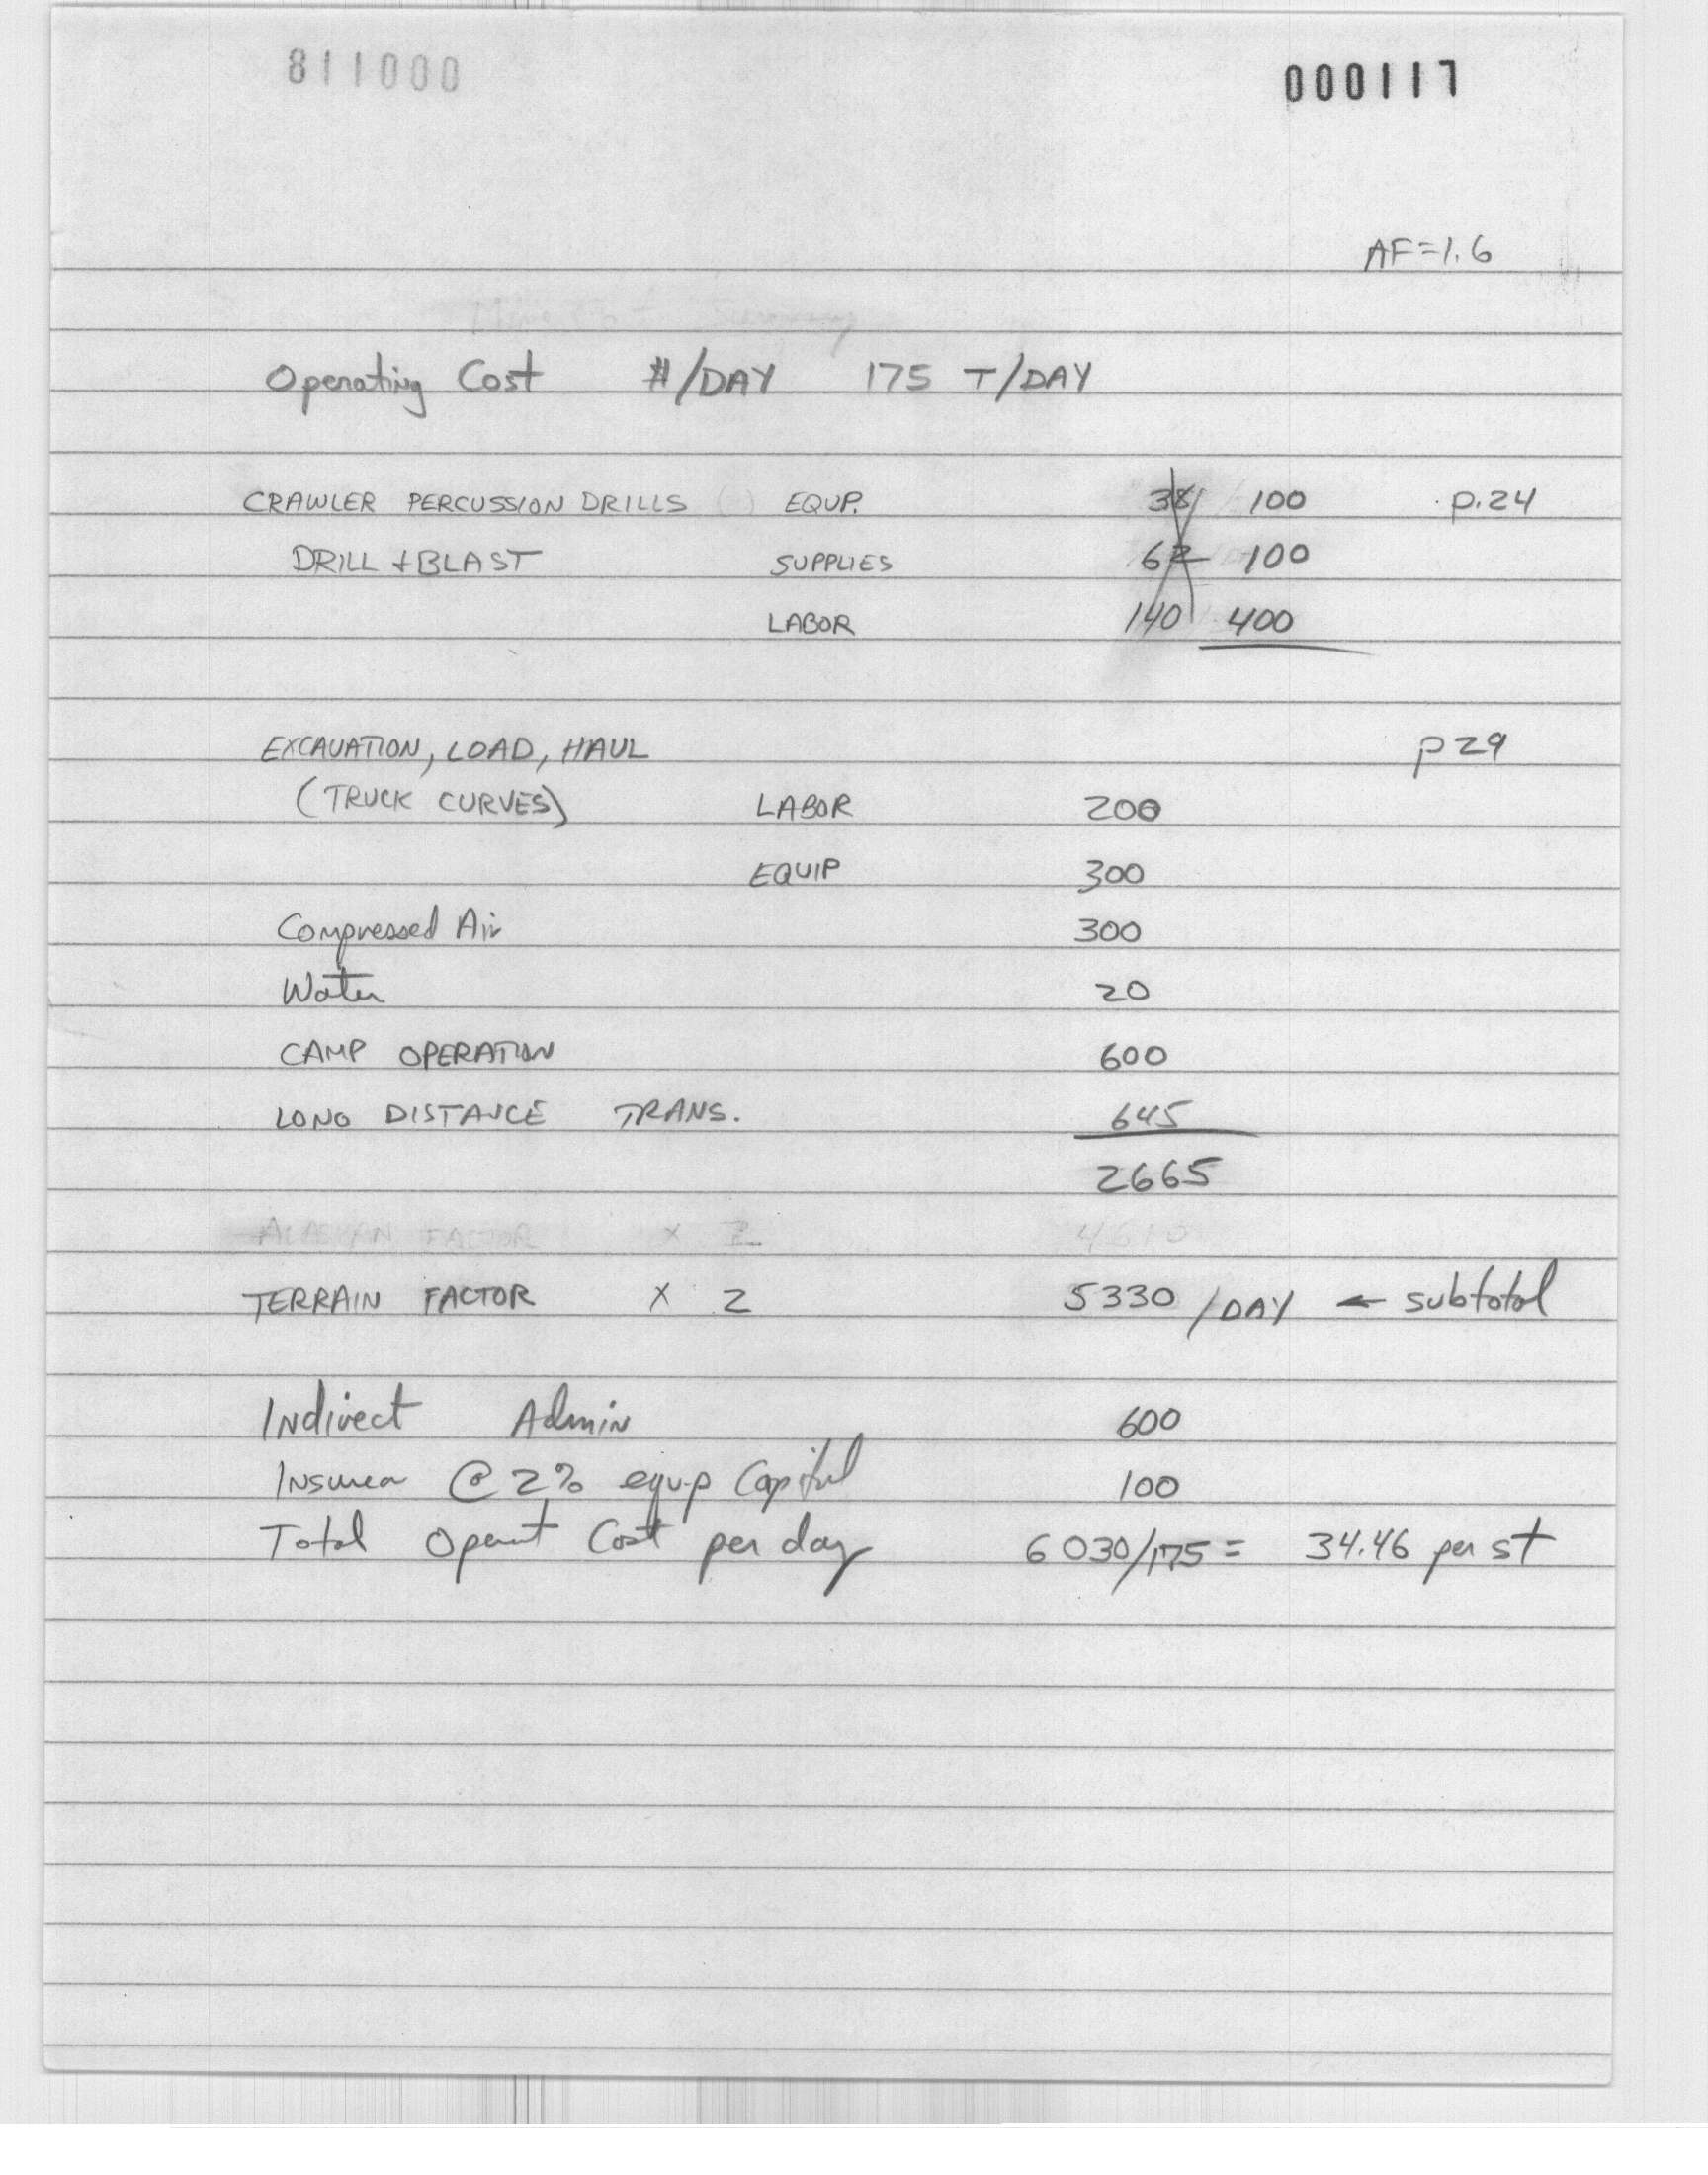 811000 000117
AF=1.6
Operating Cost #/DAY 175 T/DAY
CRAWLER PERCUSSION DRILLS EQUP. 38 100 p.24
DRILL + BLAST SUPPLIES 62 100
LABOR 140 400
EXCAVATION, LOAD, HAUL p 29
(TRUCK CURVES) LABOR 200
EQUIP 300
Compressed Air 300
Water 20
CAMP OPERATION 600
LONG DISTANCE TRANS. 645
2665
FACTOR x 2
TERRAIN FACTOR x 2 5330 /DAY ← subtotal
Indirect Admin 600
@ 2% equip Capital 100
Total Operat Cost per day 6030/175 = 34.46 per st